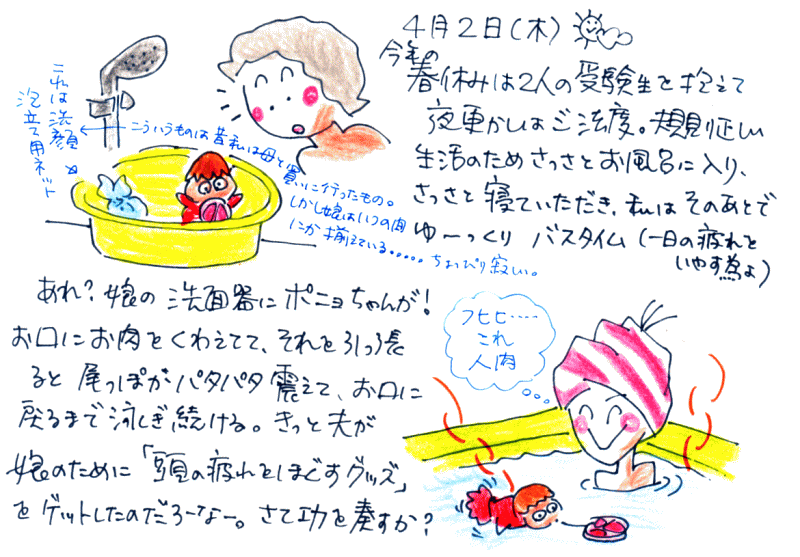 4月2日(木)
今年の
春休みは2人の受験生を抱えて
夜更かしはご法度。規則正しい
生活のためさっさとお風呂に入り、
さっさと寝ていただき、私はそのあとで
ゆ〜っくり バスタイム(一日の疲れを
いやす為よ)
これは洗顔
泡立て用ネット
こういうものは昔私は母と
買いに行ったもの。
しかし娘はいつの間
にか揃えている.....ちょっぴり寂しい。
あれ?娘の洗面器にポニョちゃんが!
お口にお肉をくわえてて、それを引っ張
ると尾っぽがパタパタ震えて、お口に
戻るまで泳ぎ続ける。きっと夫が
娘のために「頭の疲れをほぐすグッズ」
をゲットしたのだろーなー。さて功を奏すか?
フヒヒ.....
これ
人肉